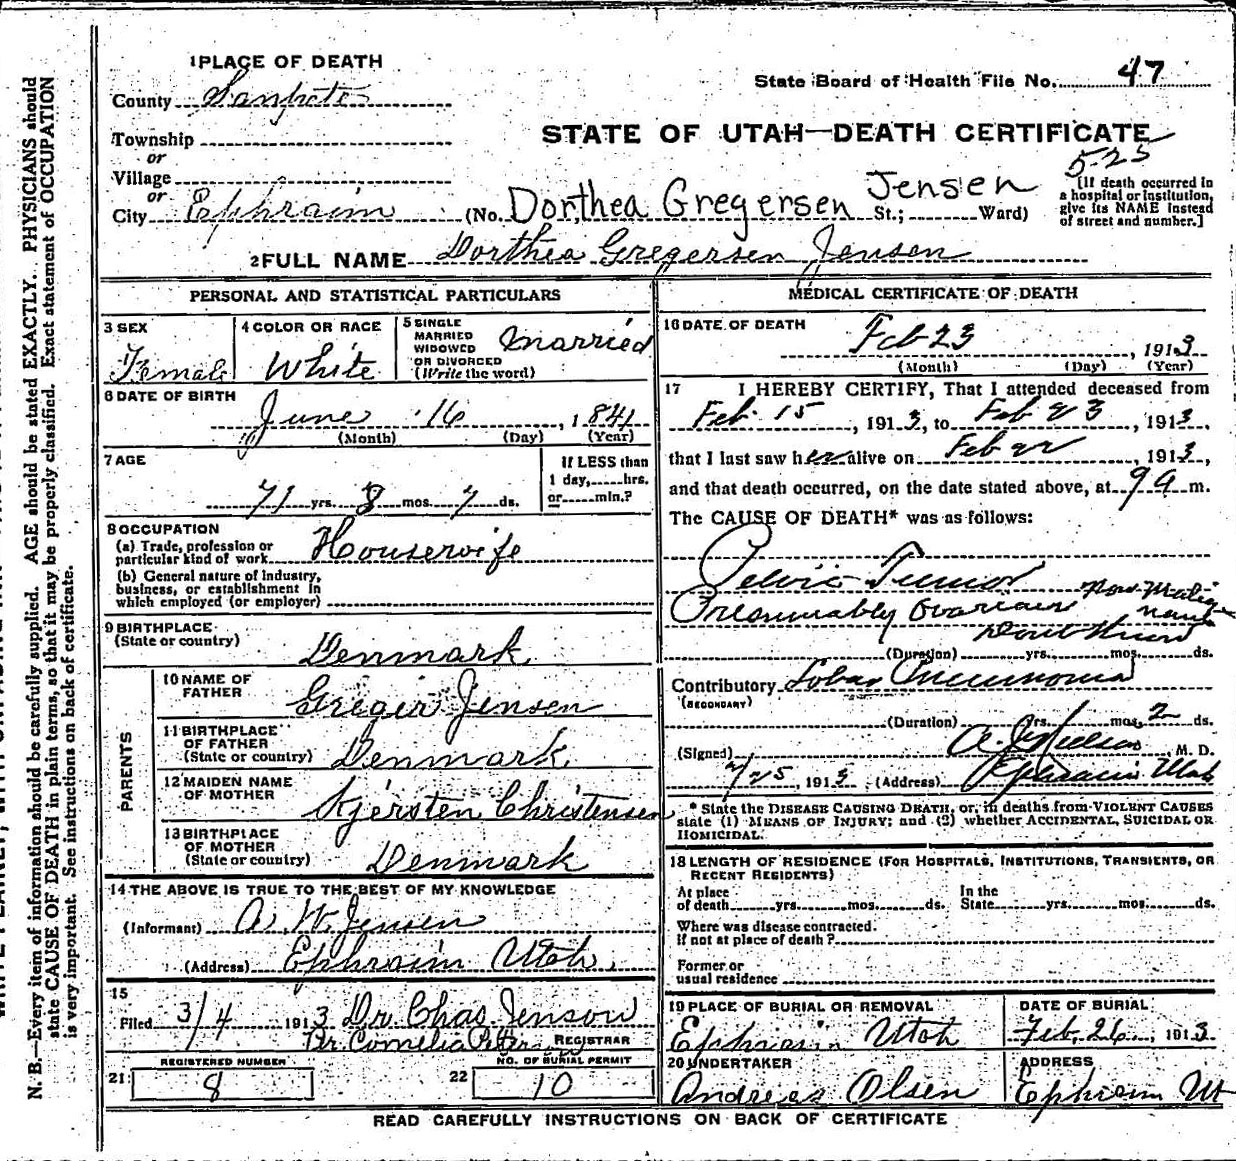 1 PLACE OF DEATH
County Sanpete
State Board of Health File No. 47
Township
or
Village
or
City Ephraim (No. Dorthea Gregersen Jensen St.; Ward)
STATE OF UTAH—DEATH CERTIFICATE
5-23
[If death occurred in
a hospital or institution,
give its NAME instead
of street and number.]
2 FULL NAME Dorthea Gregersen Jensen
PERSONAL AND STATISTICAL PARTICULARS
3 SEX
Female
4 COLOR OR RACE
White
5 SINGLE
MARRIED
WIDOWED
OR DIVORCED
(Write the word)
Married
6 DATE OF BIRTH
June 16, 1841
(Month) (Day) (Year)
7 AGE
71 yrs. 8 mos. 7 ds.
If LESS than
1 day,......hrs.
or......min.?
8 OCCUPATION
(a) Trade, profession or
particular kind of work Housewife
(b) General nature of industry,
business, or establishment in
which employed (or employer)
9 BIRTHPLACE
(State or country)
Denmark
PARENTS
10 NAME OF
FATHER
Greger Jensen
11 BIRTHPLACE
OF FATHER
(State or country) Denmark
12 MAIDEN NAME
OF MOTHER
Kjersten Christensen
13 BIRTHPLACE
OF MOTHER
(State or country) Denmark
14 THE ABOVE IS TRUE TO THE BEST OF MY KNOWLEDGE
(Informant) A. W. Jensen
(Address) Ephraim Utah
15
Filed 3/4 1913 Dr Chas Jenson
Pr. Cornelia REGISTRAR
REGISTERED NUMBER
21 8
NO. OF BURIAL PERMIT
22 10
MEDICAL CERTIFICATE OF DEATH
16 DATE OF DEATH
Feb 23, 1913
(Month) (Day) (Year)
17 I HEREBY CERTIFY, That I attended deceased from
Feb. 15, 1913, to Feb 23, 1913,
that I last saw her alive on Feb 22, 1913,
and that death occurred, on the date stated above, at 9 A m.
The CAUSE OF DEATH* was as follows:
Pelvic Tumor
Presumably Ovarian Non Malig-
nant
Dont Know
(Duration) yrs. mos. ds.
Contributory Lobar Pneumonia
(SECONDARY)
(Duration) yrs. mos. 2 ds.
(Signed) A. J. Nielson, M. D.
2/25, 1913 (Address) Ephraim Utah
* State the DISEASE CAUSING DEATH, or, in deaths from VIOLENT CAUSES
state (1) MEANS OF INJURY; and (2) whether ACCIDENTAL, SUICIDAL OR
HOMICIDAL.
18 LENGTH OF RESIDENCE (FOR HOSPITALS, INSTITUTIONS, TRANSIENTS, OR
RECENT RESIDENTS)
At place
of death......yrs......mos......ds.
In the
State......yrs......mos......ds.
Where was disease contracted.
If not at place of death?
Former or
usual residence
19 PLACE OF BURIAL OR REMOVAL
Ephraim Utah
DATE OF BURIAL
Feb, 26, 1913
20 UNDERTAKER
Andreas Olsen
ADDRESS
Ephraim Ut
READ CAREFULLY INSTRUCTIONS ON BACK OF CERTIFICATE
N. B.—Every item of information should be carefully supplied. AGE should be stated EXACTLY. PHYSICIANS should
state CAUSE OF DEATH in plain terms, so that it may be properly classified. Exact statement of OCCUPATION
is very important. See instructions on back of certificate.